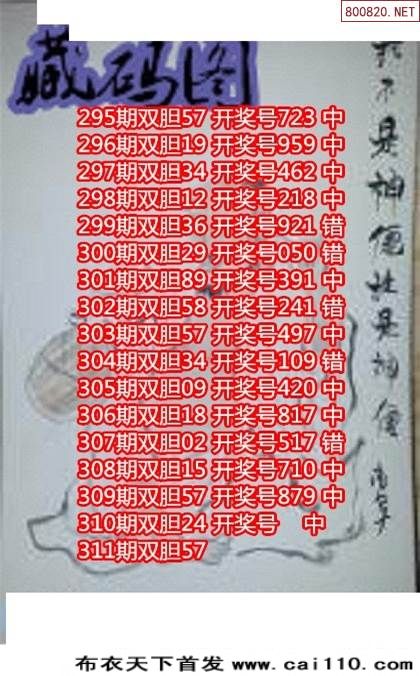 800820.NET
藏码图
295期双胆57 开奖号723 中
296期双胆19 开奖号959 中
297期双胆34 开奖号462 中
298期双胆12 开奖号218 中
299期双胆36 开奖号921 错
300期双胆29 开奖号050 错
301期双胆89 开奖号391 中
302期双胆58 开奖号241 错
303期双胆57 开奖号497 中
304期双胆34 开奖号109 错
305期双胆09 开奖号420 中
306期双胆18 开奖号817 中
307期双胆02 开奖号517 错
308期双胆15 开奖号710 中
309期双胆57 开奖号879 中
310期双胆24 开奖号 中
311期双胆57
不是神仙胜是神仙
布衣天下首发 www.cai110.com